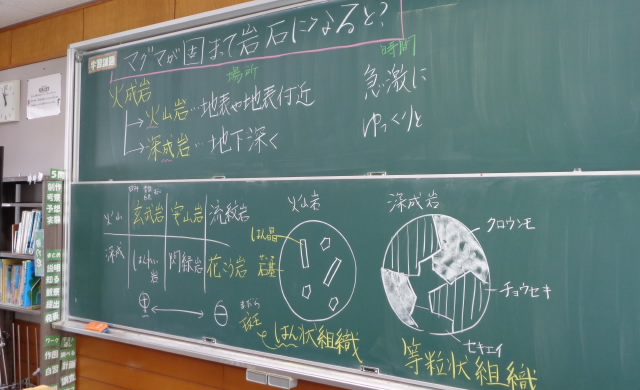 学習課題
マグマが固まって岩石になると?
場所
時間
火成岩
火山岩…地表や地表付近
急激に
深成岩…地下深く
ゆっくりと
火山
玄武岩
安山岩
流紋岩
深成
はんれい岩
閃緑岩
花こう岩
火山岩
はん晶
石基
まだら
斑
はん状組織
深成岩
クロウンモ
チョウセキ
セキエイ
等粒状組織